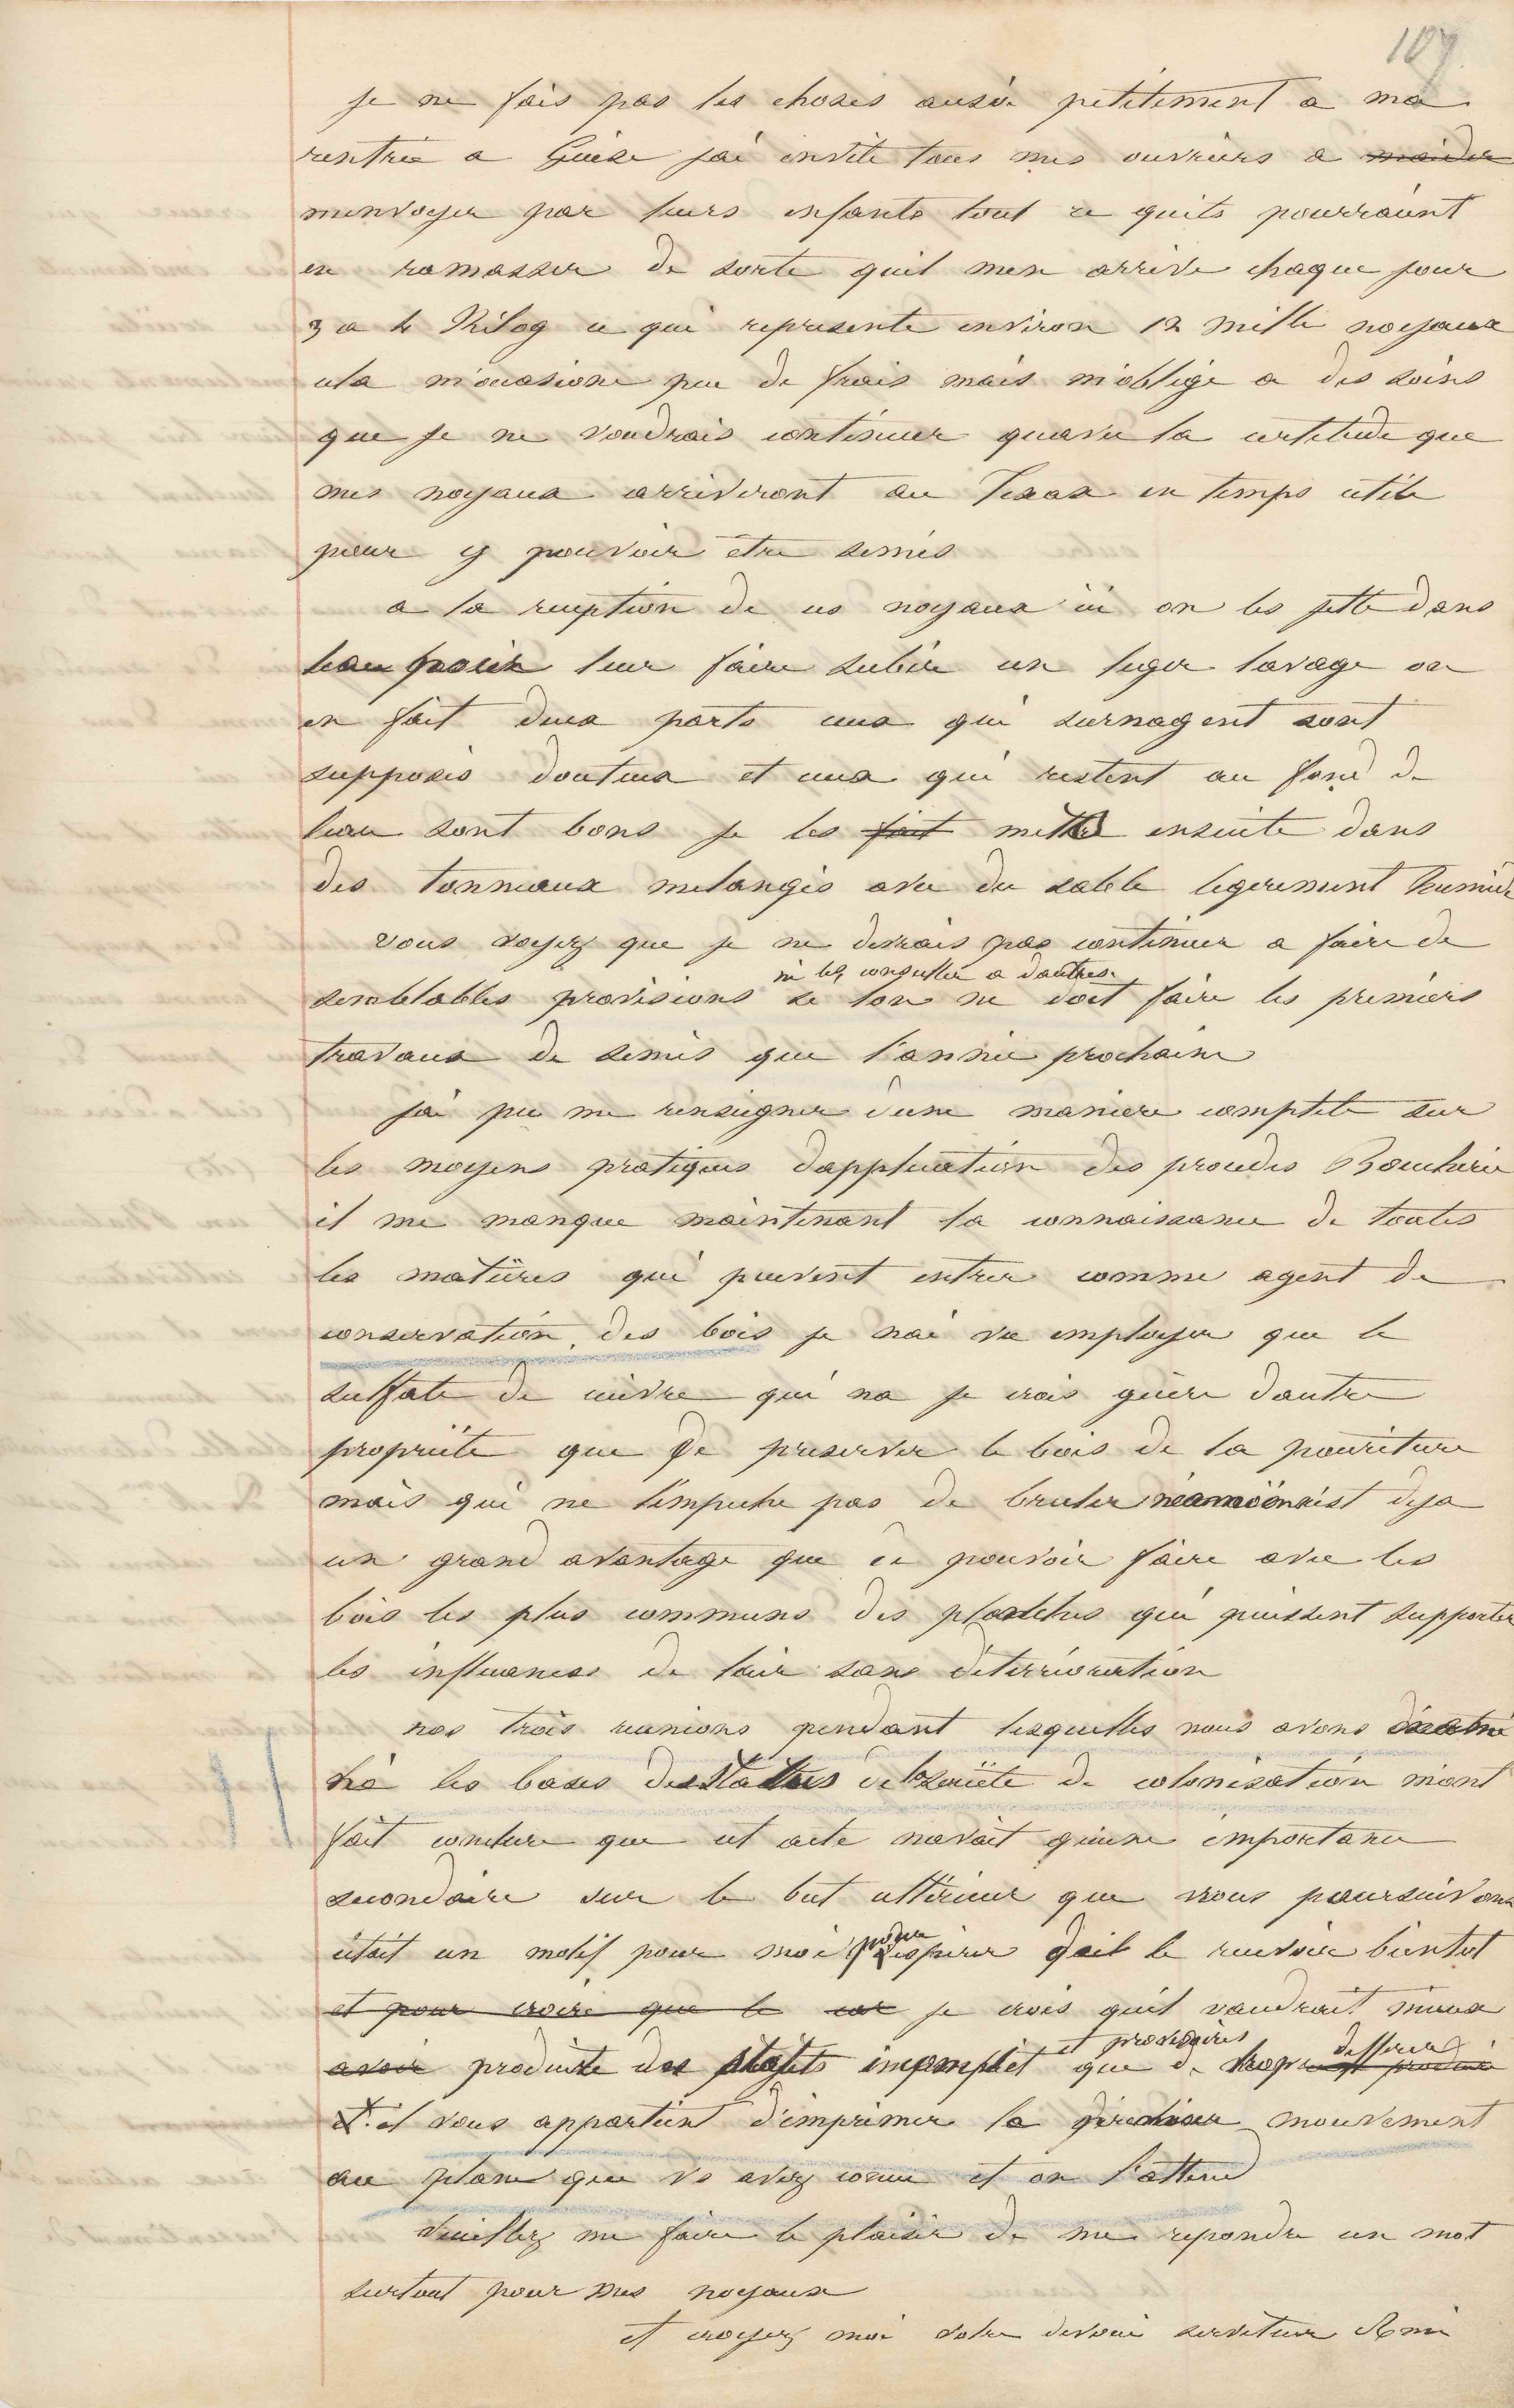 107
je ne fais pas les choses aussi petitement a ma
rentrée a Guise jai invité tous mes ouvriers a maider
menvoyer par leurs enfants tout ce quils pourraient
en ramasser de sorte quil men arrive chaque jour
3 a 4 Kilog ce qui represente environ 12 mille noyaux
cela m'ocasione peu de frais mais m'oblige a des soins
que je ne voudrais continuer quavec la certitude que
mes noyaux arriveront au Texas en temps utile
pour y pouvoir etre semés
a la reception de ces noyaux ici on les jette dans
leau pour leur faire subir un leger lavage on
en fait deux parts ceux qui surnagent sont
supposés douteux et ceux qui restent au fond de
leau sont bons je les fait mettre ensuite dans
des tonneaux melangés avec du sable legerement humide
vous voyez que je ne devrais pas continuer a faire de
ni les conseiller a dautres
semblables provisions si lon ne doit faire les premiers
travaux de semis que l'année prochaine
jai pu me renseigner dune maniere complete sur
les moyens pratiques dapplication des procedes Boucherie
il me manque maintenant la connaissance de toutes
les matières qui peuvent entrer comme agent de
conservation des bois je nai vu employer que le
sulfate de cuivre qui na je crois guère dautre
propriete que de preserver le bois de la pouriture
mais qui ne lempeche pas de bruler néamoins cist deja
un grand avantage que de pouvoir faire avec les
bois les plus communs des planches qui puissent supporter
les influances de lair sans déterrioration
nos trois reunions pendant lesquelles nous avons
les bases des statuts de la société de colonisation mont
fait conclure que cet acte navait quune importance
secondaire sur le but ultérieur que nous poursuivons
pour
cétait un motif pour moi espérer quil le recevoir bientot
et pour croire que le car je crois quil vaudrait mieux
et provisoires
differer
avoir produire des statuts incomplet que de trop
et il vous appartient d'imprimer le premier mouvement
au plan que vs avez concu et on l'attend
Veuillez me faire le plaisir de me repondre un mot
surtout pour mes noyaux
et croyez moi votre devoué serviteur Ami